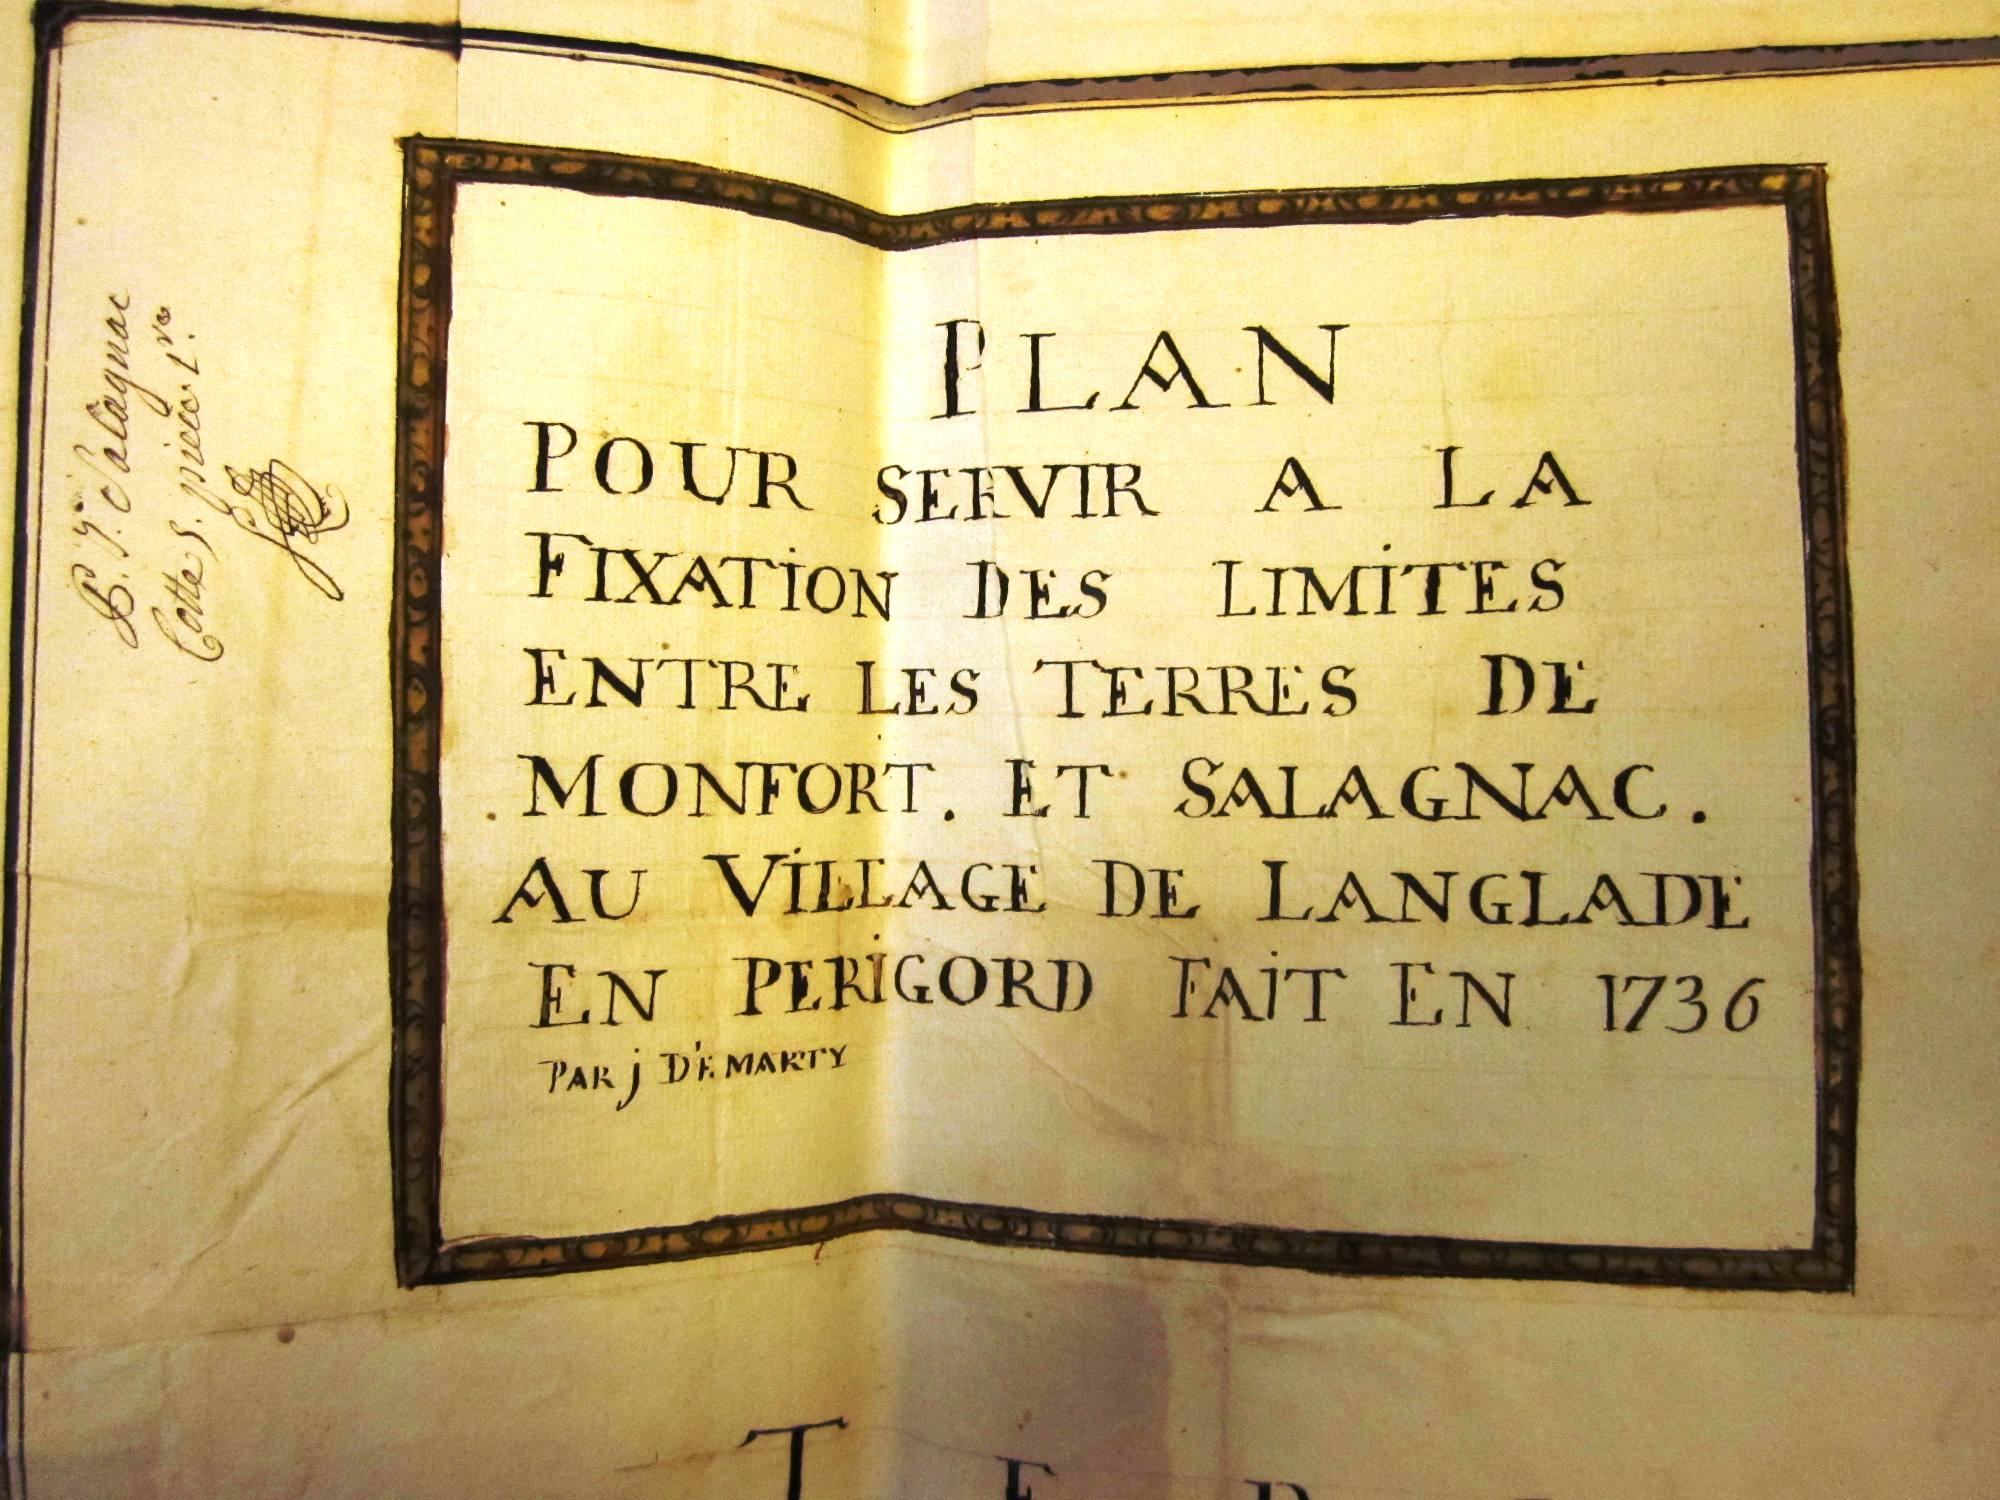 PLAN
POUR SERVIR A LA
FIXATION DES LIMITES
ENTRE LES TERRES DE
MONFORT. ET SALAGNAC.
AU VILLAGE DE LANGLADE
EN PERIGORD FAIT EN 1736
PAR j DEMARTY
Salagnac
Cotte S. piece 1re
T E R